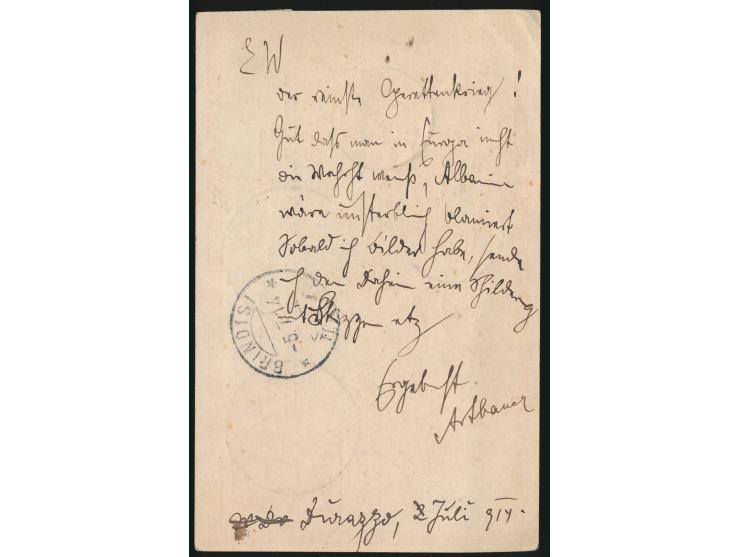 EW
der reinste Operettenkrieg!
Gut dass man in Europa nicht
die Wahrht weiß, Albanien
wäre unsterblich blamiert
Sobald ich Bilder habe, sende
ich dem Daheim eine Schilderg
mit Skizzen etz
BRINDISI
-5.7.14
Ergebenst
Artbauer
Durazzo, 2 Juli 914.